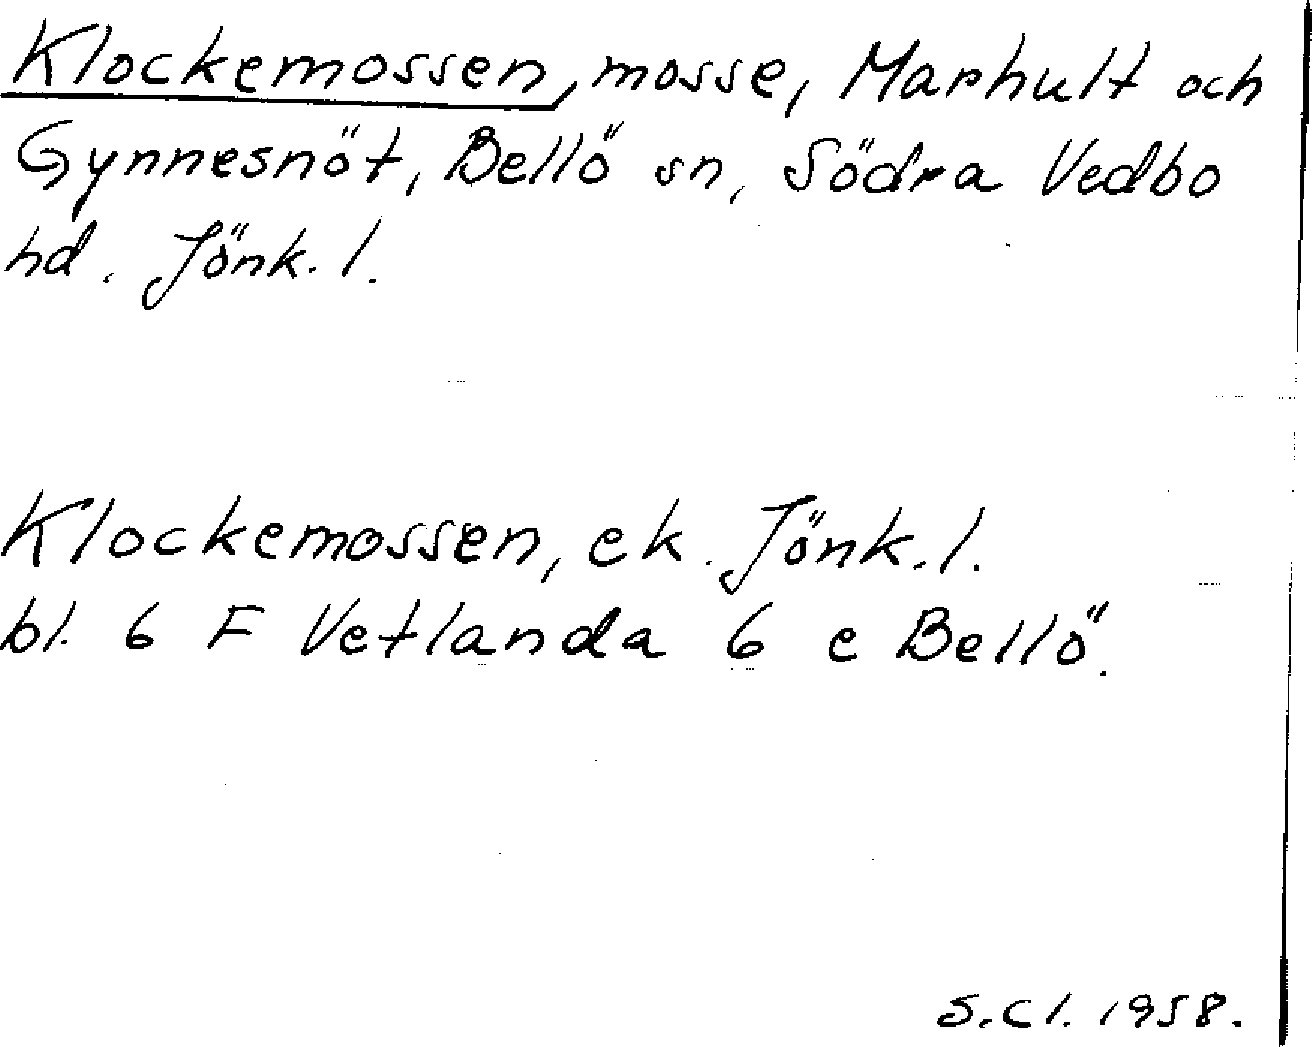 Klockemossen, mosse, Marhult och
Gynnesnöt, Bellö sn, Södra Vedbo
hd. Jönk. l.
Klockemossen, ek. Jönk. l.
bl. 6 F Vetlanda 6 e Bellö.
S. Cl. 1958.